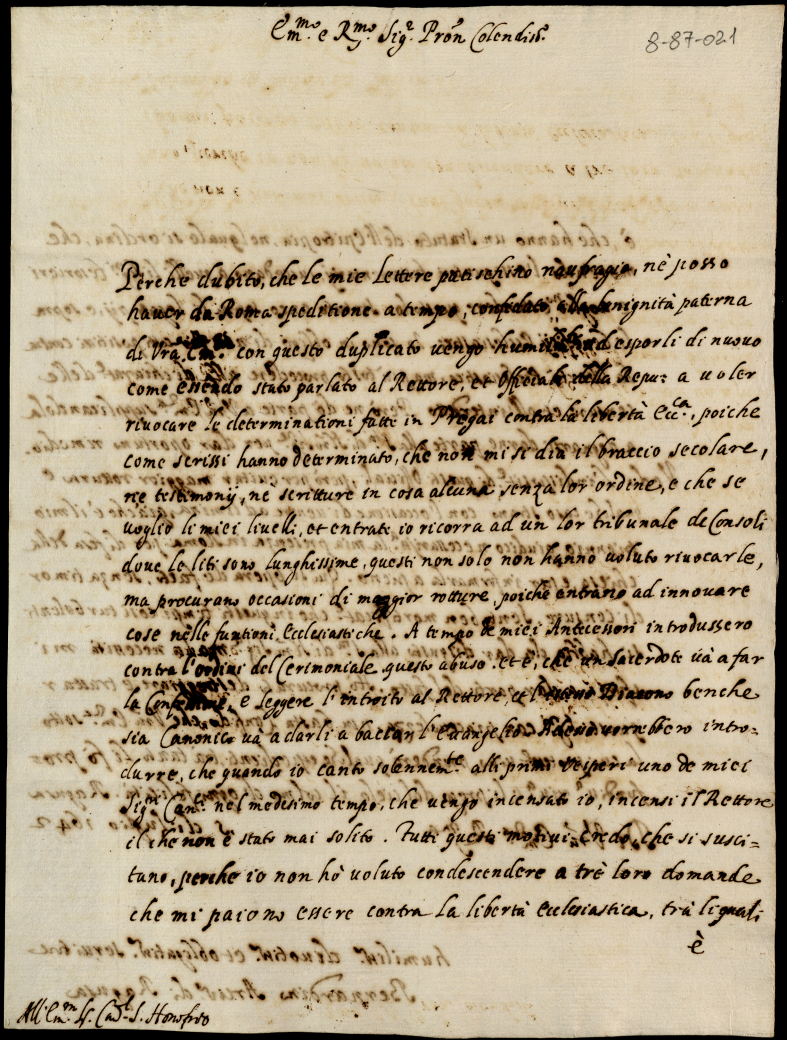 Em.mo e R.mo Sig.r Pron Colendiss.o
8-87-021
Perche dubito, che le mie lettere patischino naufragio, nè posso
haver da Roma speditione a tempo, confidato alla benignità paterna
di Vra Em. con questo duplicato vengo ad esporli di nuovo
come essendo stato parlato al Rettore, et Officiali della Repu: a voler
rivocare le determinationi fatte in Pregai contra la libertà Ecc.ca, poiche
come scrissi hanno determinato, che non mi si dia il braccio secolare,
ne testimonij, nè scritture in cosa alcuna senza lor ordine, e che se
voglio li miei livelli, et entrate io ricorra ad un lor tribunale de Consoli
dove le liti sono lunghissime, questi non solo non hanno voluto rivocarle,
ma procurano occasioni di maggior rotture, poiche entrano ad innovare
cose nelle funtioni Ecclesiastiche. A tempo de miei Antecessori introdussero
contra l'ordini del Cerimoniale questo abuso. et è, che un Sacerdote và a far
la è leggere l'introito al Rettore, et Diacono benche
sia Canonico và a darli a baciar l'Evangelio. vorrebbero intro=
durre, che quando io canto solennem.te alli primi vesperi uno de miei
Sig.ri Can.ci nel medesimo tempo, che vengo incensato io, incensi il Rettore
il che non è stato mai solito. Tutti questi motivi, credo, che si susci=
tano, perche io non hò voluto condescendere a trè loro domande
che mi paiono essere contra la libertà Ecclesiastica, trà li quali
è
All' Em.mo S. Card. S. Honofrio